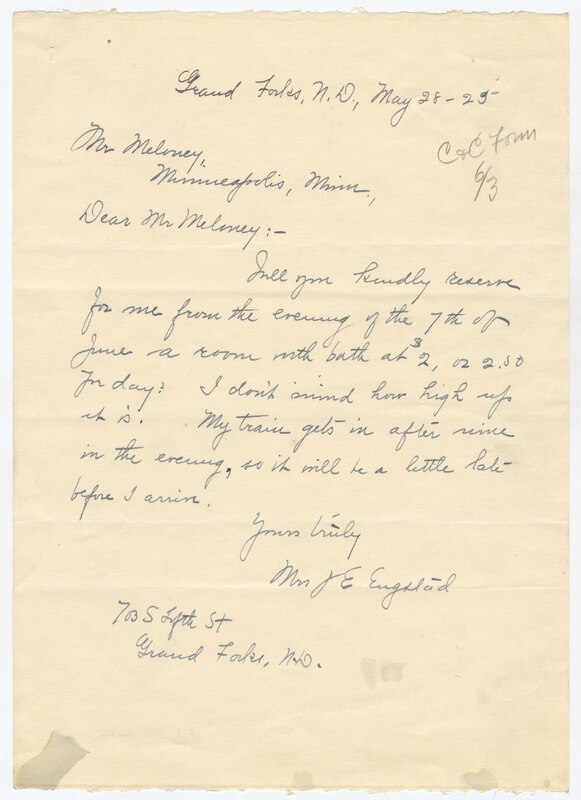 Grand Forks, N.D., May 28-25
C & C Form
6/3
Mr Meloney,
Minneapolis, Minn.,
Dear Mr Meloney:-
Will you kindly reserve
for me from the evening of the 7th of
June a room with bath at $2, or 2.50
per day? I don't mind how high up
it is. My train gets in after nine
in the evening, so it will be a little late
before I arrive.
Yours truly
Mrs J E Engstad
703 S Fifth St
Grand Forks, N.D.